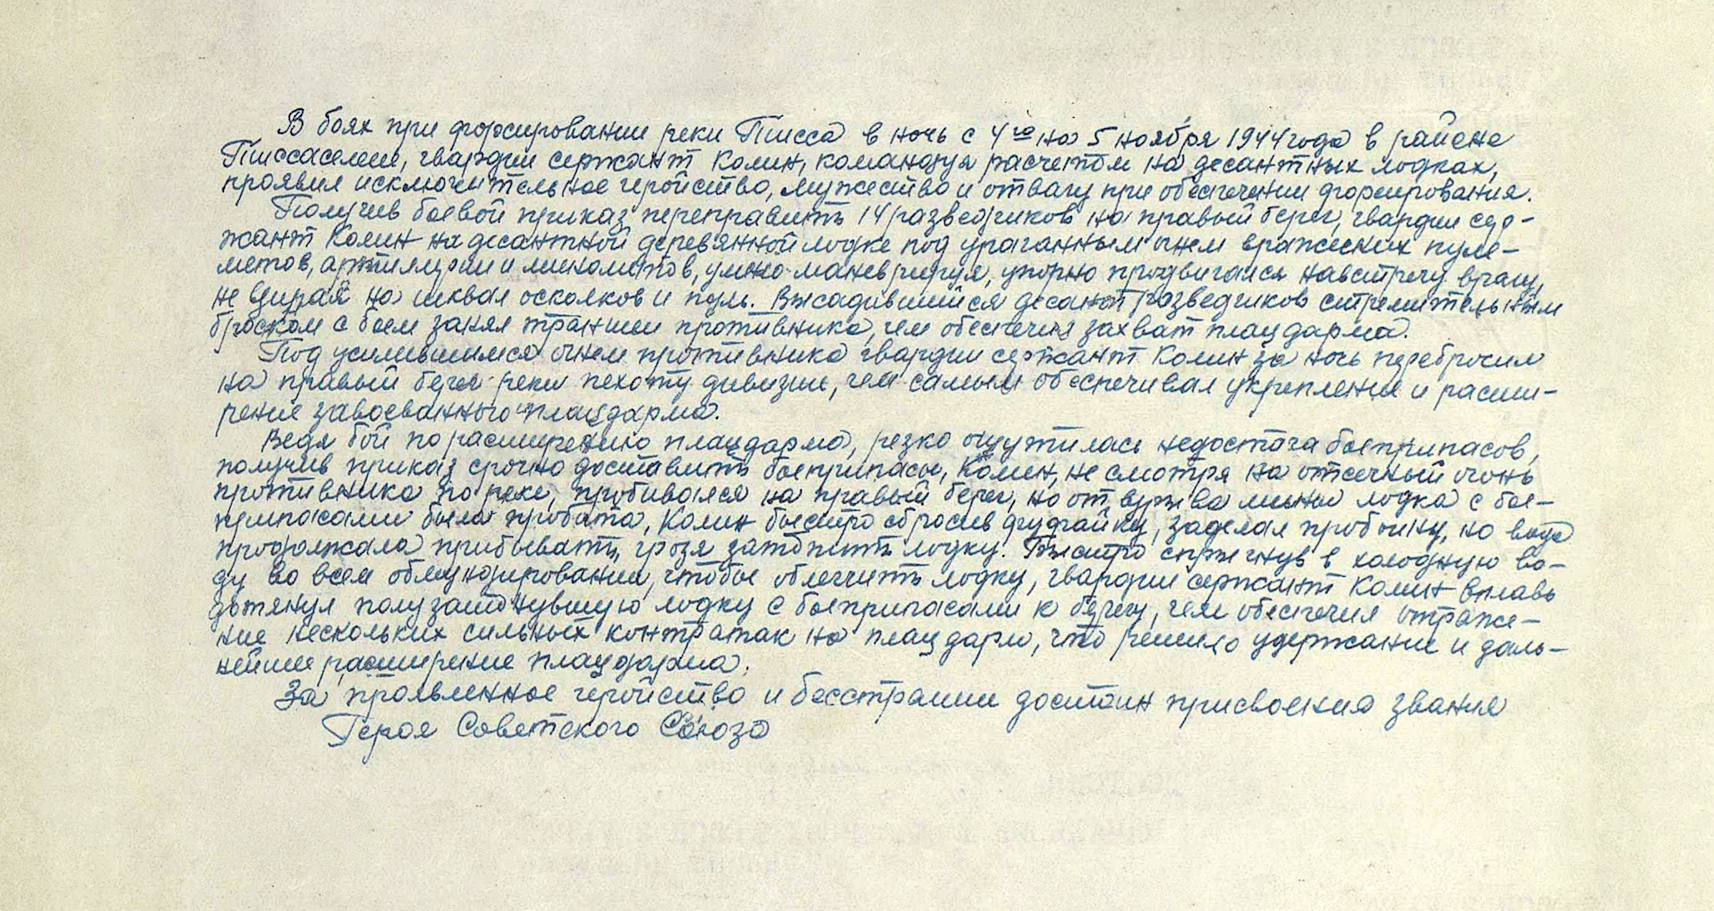 В боях при форсировании реки Тисса в ночь с 4го на 5 ноября 1944 года в районе
Тиссаселеш, гвардии сержант Колин, командуя расчетом на десантных лодках,
проявил исключительное геройство, мужество и отвагу при обеспечении форсирования.
Получив боевой приказ переправить 14 разведчиков на правый берег, гвардии сер-
жант Колин на десантной деревянной лодке под ураганным огнем вражеских пуле-
метов, артиллерии и минометов, умело маневрируя, упорно продвигался навстречу врагу,
не взирая на шквал осколков и пуль. Высадившийся десант разведчиков стремительным
броском с боем занял траншеи противника, чем обеспечил захват плацдарма.
Под усилившимся огнем противника гвардии сержант Колин за ночь перебросил
на правый берег реки пехоту дивизии, чем самым обеспечивал укрепление и расши-
рение завоеванного плацдарма.
Ведя бой по расширению плацдарма, резко ощутилась недостача боеприпасов,
получив приказ срочно доставить боеприпасы, Колин, не смотря на отсечный огонь
противника по реке, пробивался на правый берег, но от взрыва мины лодка с бое-
припасами была пробита, Колин быстро сбросив фуфайку, заделал пробоину, но вода
продолжала прибывать, грозя затопить лодку. Быстро спрыгнув в холодную во-
ду во всем обмундировании, чтобы облегчить лодку, гвардии сержант Колин вплавь
дотянул полузатонувшую лодку с боеприпасами к берегу, чем обеспечил отраже-
ние нескольких сильных контратак на плацдарм, что решило удержание и даль-
нейшее расширение плацдарма.
За проявленное геройство и бесстрашие достоин присвоения звания
Героя Советского Союза